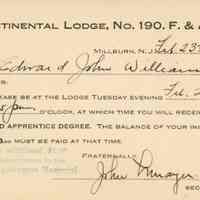 TINENTAL LODGE, NO. 190. F. & A
MILLBURN, N.J. Feb 23
Edward John William
S.
EASE BE AT THE LODGE TUESDAY EVENING
O'CLOCK, AT WHICH TIME YOU WILL RECEI
D APPRENTICE DEGREE. THE BALANCE OF YOUR IN
MUST BE PAID AT THAT TIME.
FRATERNALLY
John
SEC